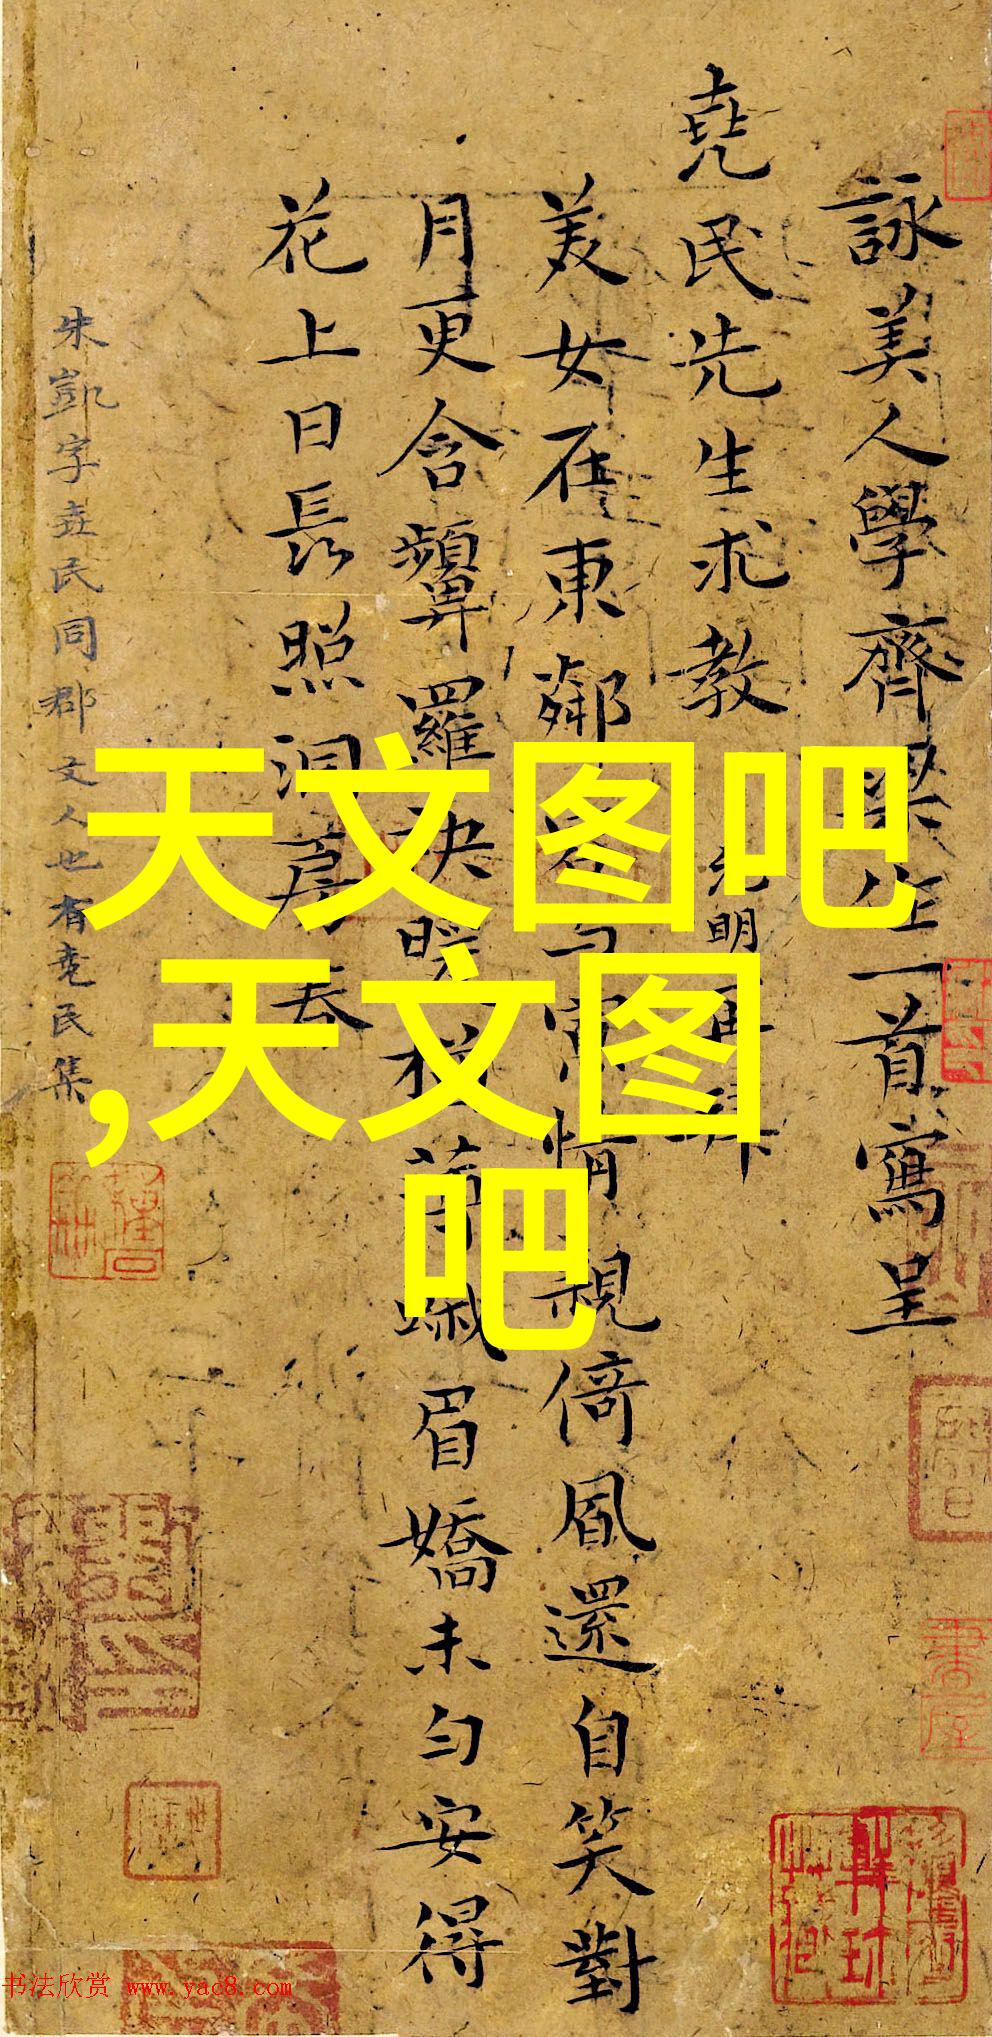 詠美人學齊梁作一首寫呈
堯民先生求教 元明再拜
美女在東鄰 情親倚風還自笑對
月更含顰羅袂暖 眉嬌未勻安得
花上日長照洞房春
朱凱字堯民同郡文人也有堯民集
天文图吧
,天文图
吧
书法欣赏 www.yac8.com